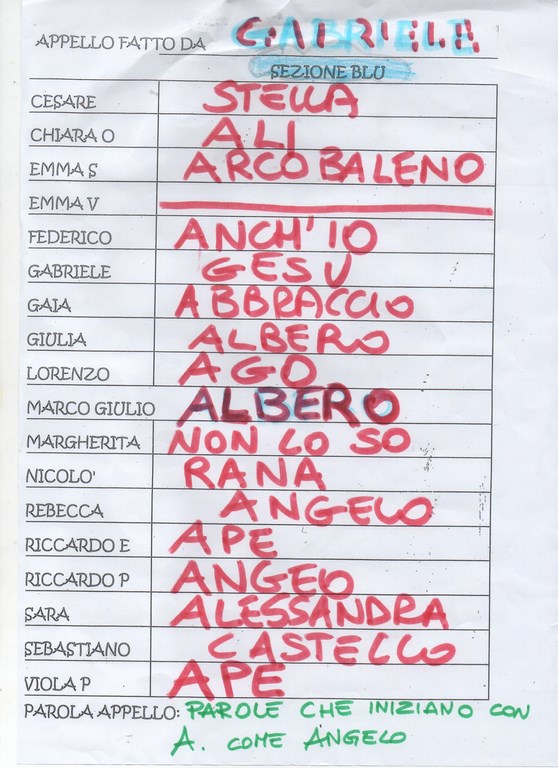 APPELLO FATTO DA GABRIELE
SEZIONE BLU
CESARE STELLA
CHIARA O ALI
EMMA S ARCOBALENO
EMMA V
FEDERICO ANCH'IO
GABRIELE GESU
GAIA ABBRACCIO
GIULIA ALBERO
LORENZO AGO
MARCO GIULIO ALBERO
MARGHERITA NON LO SO
NICOLO' RANA
REBECCA ANGELO
RICCARDO E APE
RICCARDO P ANGELO
SARA ALESSANDRA
SEBASTIANO CASTELLO
VIOLA P APE
PAROLA APPELLO: PAROLE CHE INIZIANO CON
A. COME ANGELO